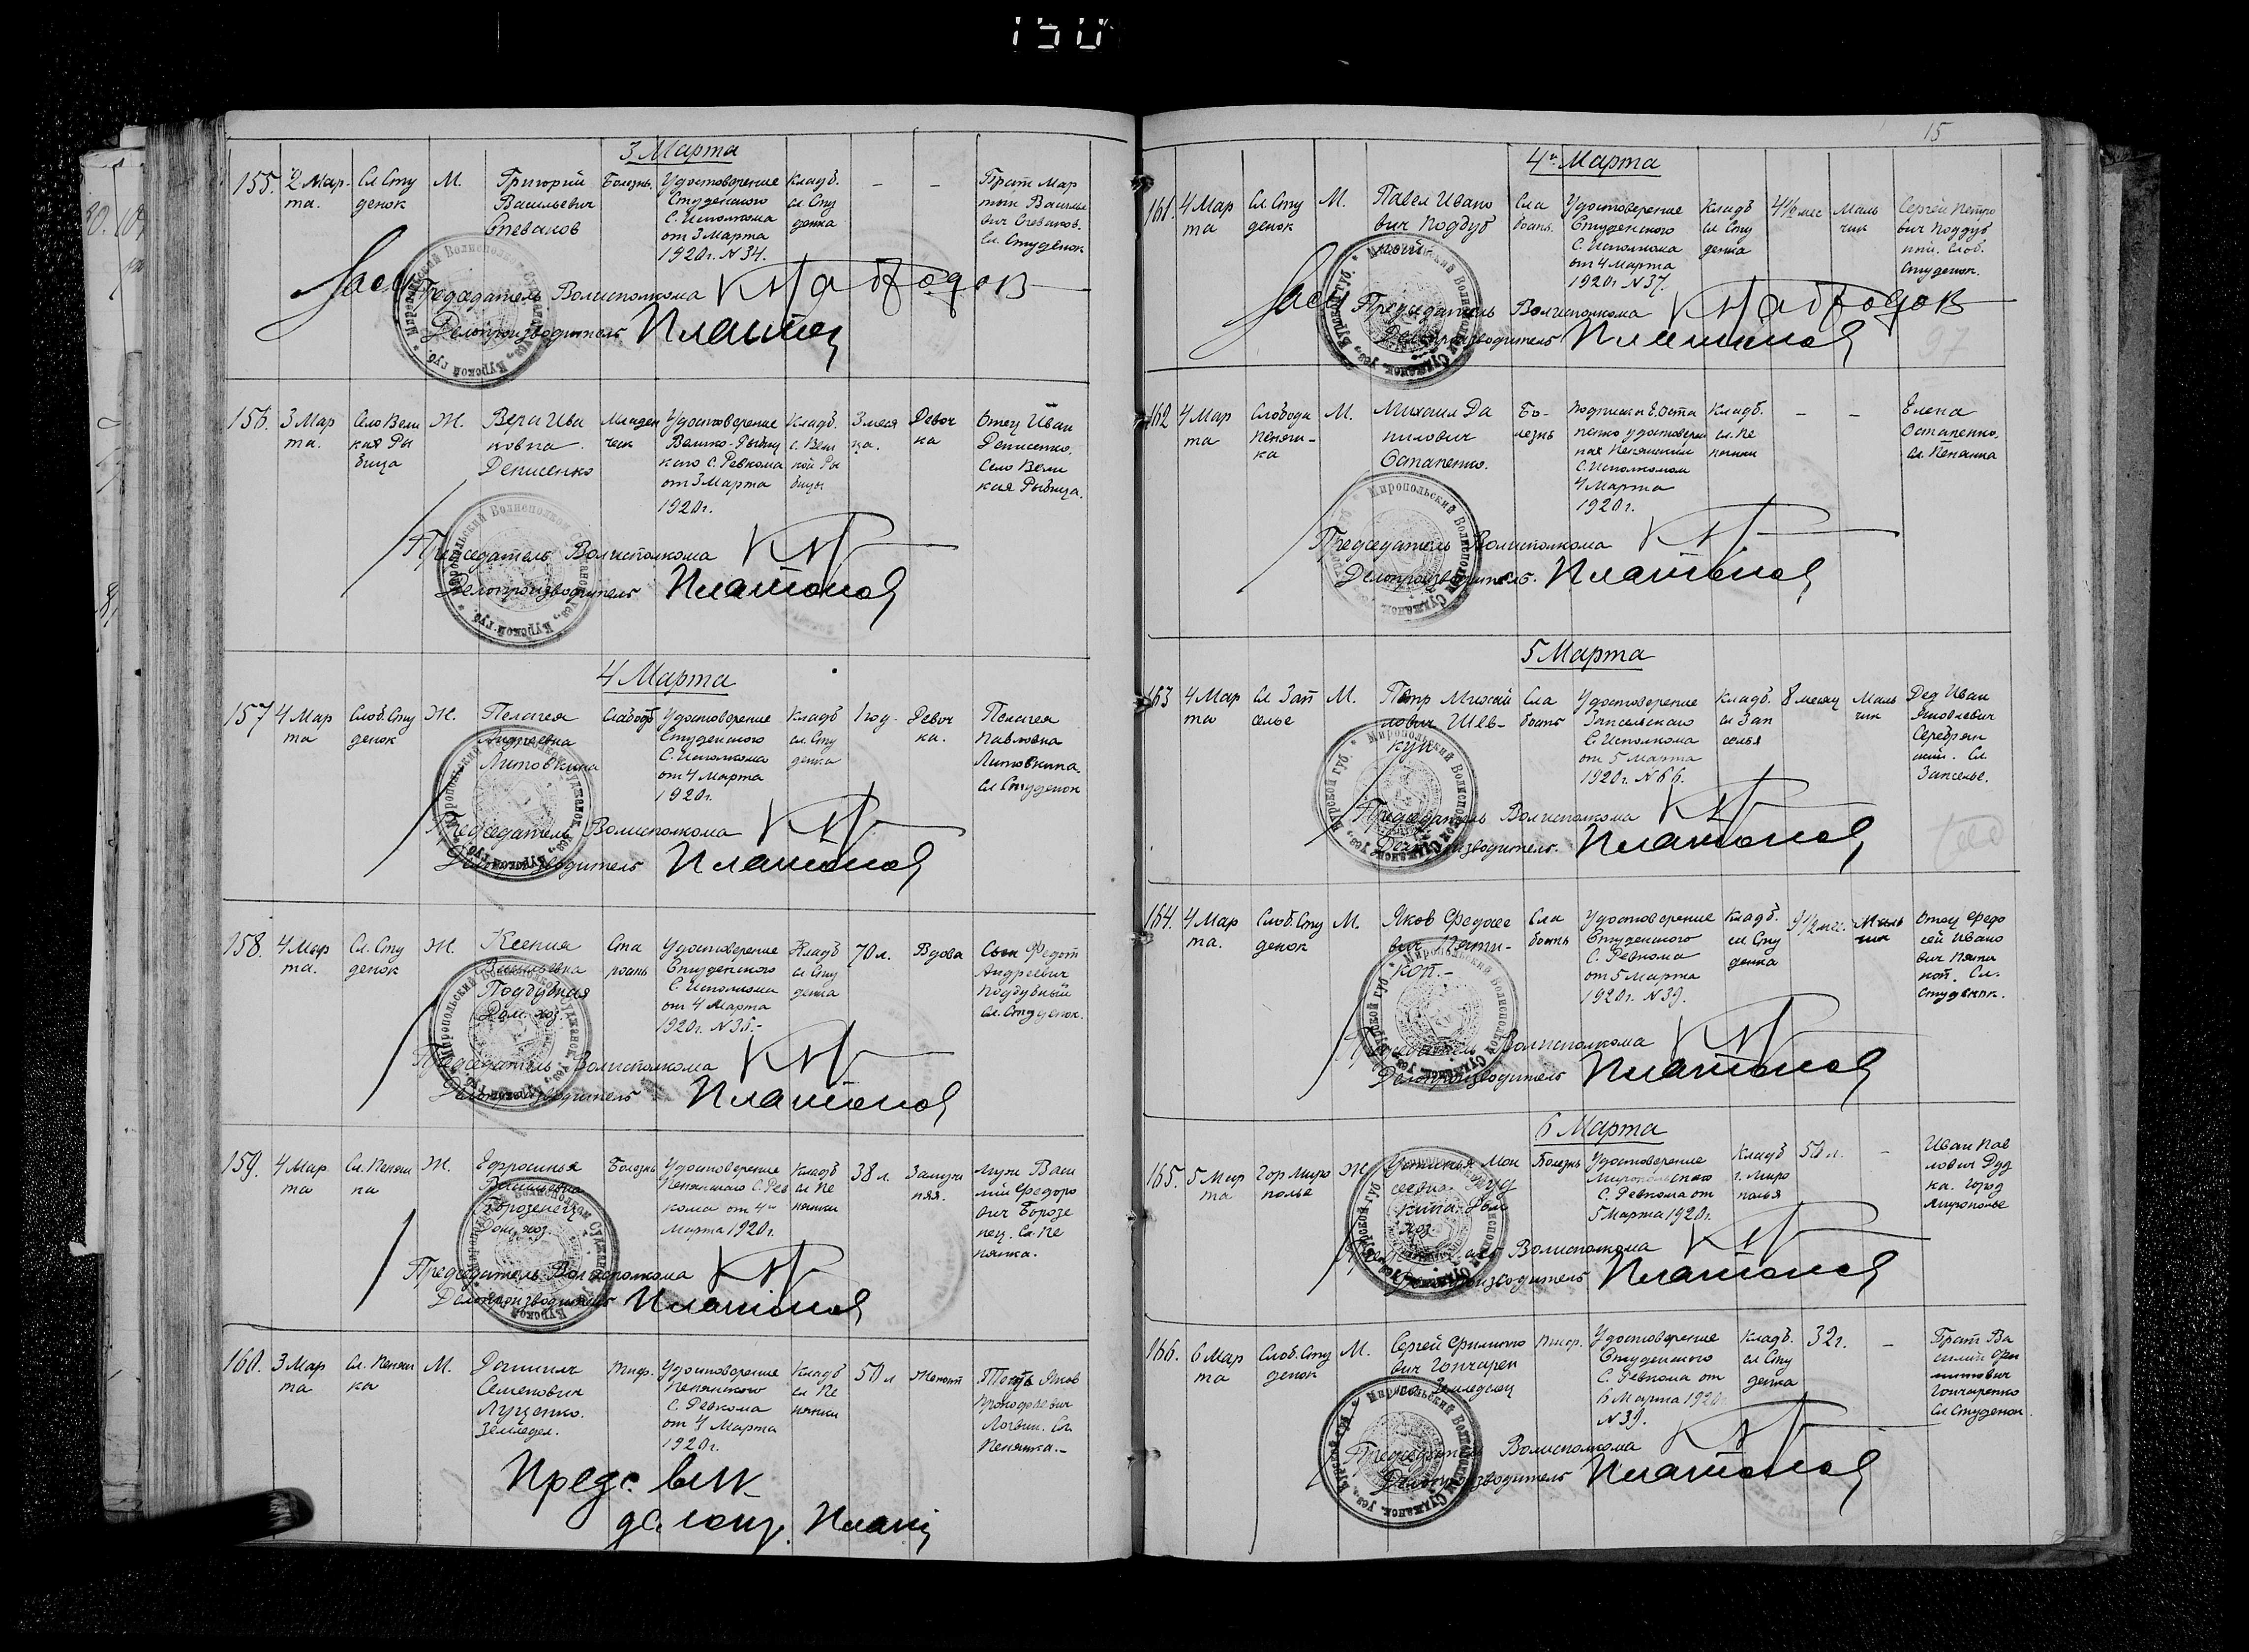 150
3 Марта
155. 2 Мар-та. Сл Сту денок М. Григорий Васильевич Спеваков Болезнь. Удостоверение Студенского С. Исполкома от 3 Марта 1920 г. N 34. Кладб. сл Сту денка - - Брат Мар тин Василье вич Спеваков. Сл. Студенок
Председатель Волисполкома
Делопроизводитель
156. 3 Мар та. Село Вели кая Ры бица Ж. Вера Ива новна Денисенко Младен ческ Удостоверение Велико-Рыбиц кого С. Ревкома от 3 Марта 1920 г. Кладб. с. Вели кой Ры бицы 3 меся ца. Девоч ка Отец Иван Денисенко. Село Вели кая Рыбица.
Председатель Волисполкома
Делопроизводитель Платонов
4 Марта
157 4 Мар та Слоб. Сту денок Ж. Пелагея Андреевна Литовкина Слабость Удостоверение Студенского С. Исполкома от 4 Марта 1920 г. Кладб сл. Сту денка 1 год. Девоч ка. Пелагея Павловна Литовкина. Сл Студенок
Председатель Волисполкома
Делопроизводитель Платонов
158. 4 Мар та. Сл. Сту денок Ж. Ксения Поддубная Дом. хоз. Ста рость Удостоверение Студенского С. Исполкома от 4 Марта 1920 г. Кладб сл Сту денка 70 л. Вдова Сын Федот Андреевич Поддубный Сл. Студенок.
Председатель Волисполкома
Делопроизводитель Платонов
159. 4 Мар та Сл. Пенян ка Ж. Ефросинья Васильевна Дом. хоз. Болезнь Удостоверение Пенянского С. Рев кома от 4 Марта 1920 г. Кладб сл Пе нянки 38 л. Замуж няя. Муж Васи лий Федоро вич Борозе нец. Сл. Пе нянка.
Председатель Волисполкома
Делопроизводитель Платонов
160. 3 Мар та Сл. Пенян ка М. Даниил Семенович Луценко. Земледел. Тиф. Удостоверение Пенянского С. Ревкома от 4 Марта 1920 г. Кладб сл Пе нянки 50 л Женат Яков Сл. Пенянка.-
Предс. ВИК
15
4 Марта
161. 4 Мар та Сл. Сту денок М. Павел Ивано вич Поддуб ный Сла бость. Удостоверение Студенского С. Исполкома от 4 Марта 1920 г N 37. Кладб сл Сту денка 4 1/2 мес Маль чик Сергей Петро вич Поддуб ный. Слоб. Студенок.
Председатель Волисполкома
Делопроизводитель Платонов
97
162 4 Мар та Слобода Пенян- ка М. Михаил Да нилович Остапенко. Бо- лезнь Подписка Е. Оста пенко удостоверен ная Пенянским С. Исполкомом 4 Марта 1920 г. Кладб. сл. Пе нянки - - Елена Остапенко. Сл. Пенянка
Председатель Волисполкома
Делопроизводитель. Платонов
5 Марта
163 4 Мар та Сл Зап селье М. Петр Михай лович Шев- Сла бость Удостоверение Запсельского С. Исполкома от 5 Марта 1920 г. N 66. Кладб. сл Зап селья 8 месяц Маль чик Дед Иван Яковлевич Серебрян ский. Сл. Запселье.
Председатель Волисполкома
Делопроизводитель. Платонов
164. 4 Мар та. Слоб. Сту денок М. Яков Федосе вич Пята- коп.- Сла бость Удостоверение Студенского С. Ревкома от 5 Марта 1920 г. N 39. Кладб. сл Сту денка 9 1/2 мес. Маль чик Отец Федо сей Ивано вич Пята коп. Сл. Студенок.
Председатель Волисполкома
Делопроизводитель Платонов
6 Марта
165. 5 Мар та Гор Миро полье Ж Устинья Мои сеевна Дуд кина. Дом. хоз. Болезнь Удостоверение Миропольского С. Ревкома от 5 Марта 1920 г. Кладб г. Миро полья 50 л. - Иван Пав лович Дуд ка. Город Мирополье
Председатель Волисполкома
Делопроизводитель Платонов
166. 6 Мар та Слоб. Сту денок М. Сергей Филиппо вич Гончарен ко Земледелец Тиф. Удостоверение Студенского С. Ревкома от 6 Марта 1920 г N 39. Кладб. сл Сту денка 32 г. - Брат Ва силий Фи липпович Гончаренко Сл Студенок.
Председатель Волисполкома
Делопроизводитель Платонов
Миропольский Волисполком Суджанск. уез., Курской губ.